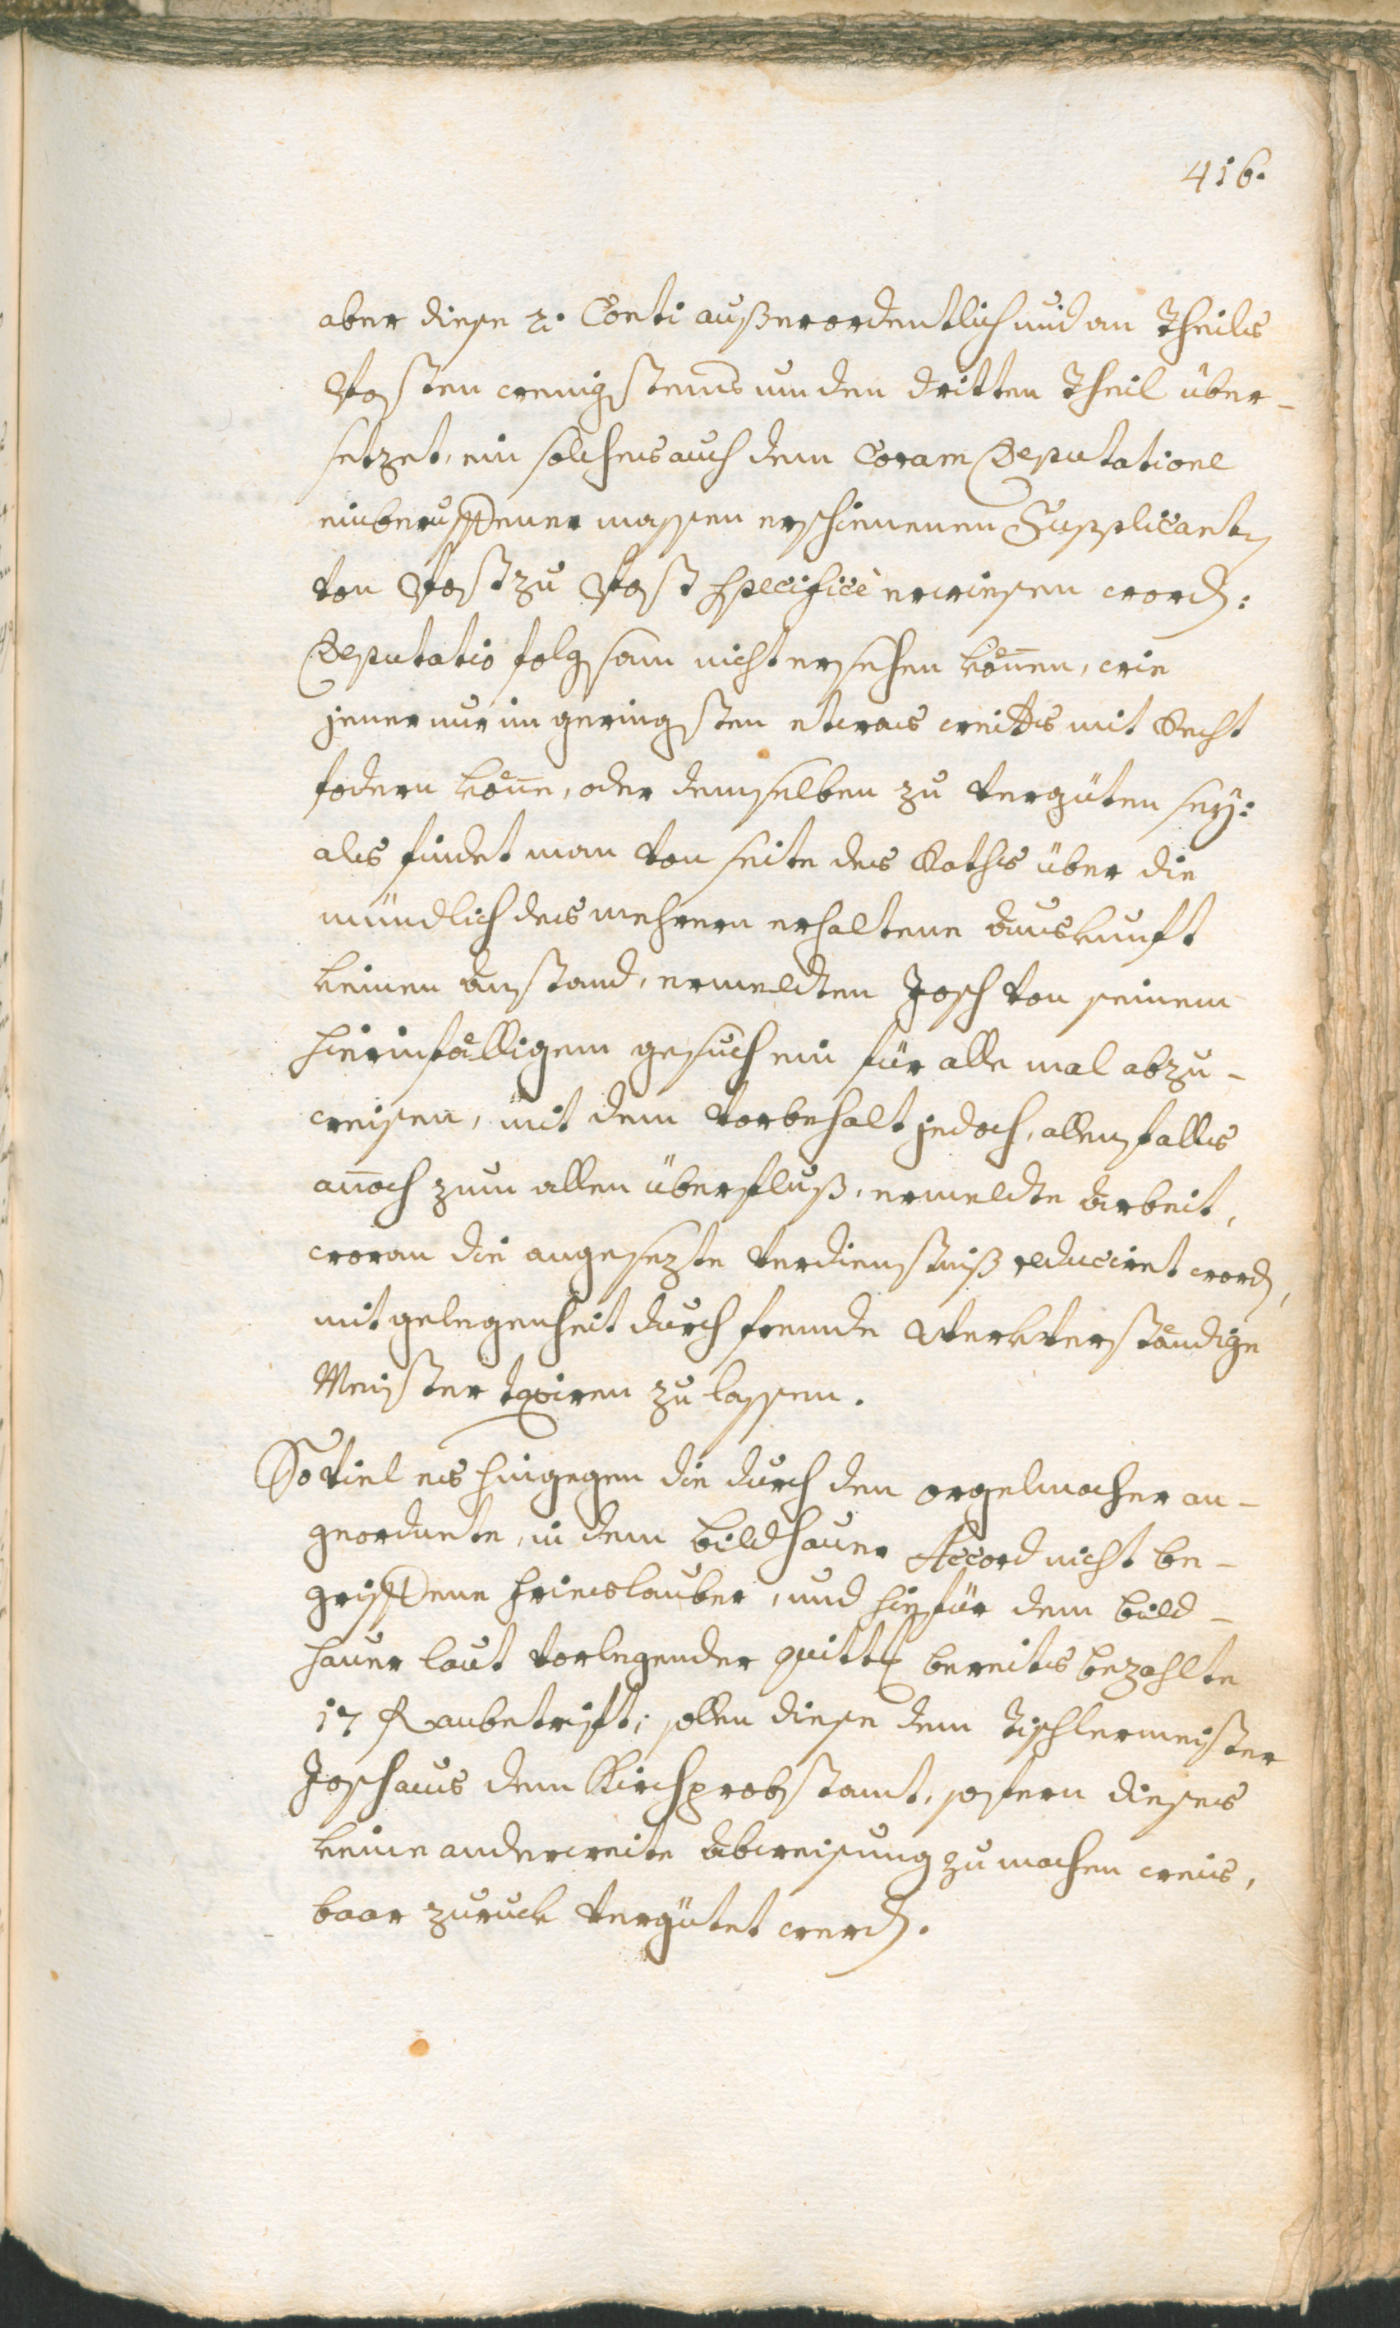 416.
aber diese 2. Conti außerordentlich und an Theils
Posten wenigstens um den dritten Theil über-
setzet, ein solches auch dem Coram Deputatione
einberuffener massen erschienenen Supplicanten
von Post zu Post specificè erwiesen word:
Deputatio folgsam nicht ersehen könen, wie
jener nur im geringsten etwas weiters mit Recht
fodern köne, oder demselben zu vergüten sey:
als findet man von seite des Raths über die
mündlich des mehrern erhaltene auskunft
keinen anstand, ermeldten Josch von seinem
hierinfälligem gesuch ein für alle mal abzu-
weisen, mit dem vorbehalt jedoch, allenfalls
anoch zum allen überfluß, ermeldte arbeit,
woran die angesezte verdienstniß reduciret word,
mit gelegenheit durch fremde Werkverständige
Meister taxiren zu lassen.
So viel es hingegen die durch den orgelmacher an-
geordnete, in dem bildhauer Accord nicht be-
griffene hrieslauber, und hiefür dem bild-
hauer laut vorlegender quitt bereits bezahlte
17 R anbetrift; sollen diese dem Tischlermeister
Josch aus dem Kirchprobstamt, sofern dieses
keine anderweite abweisung zu machen weis,
baar zuruck vergütet werd.